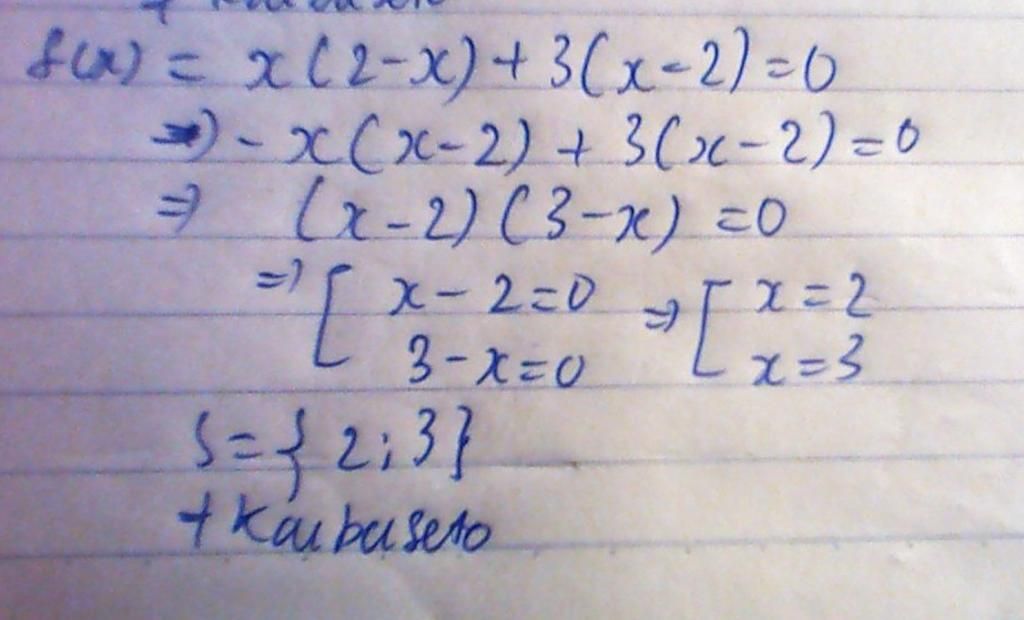 f(x) = x(2-x) + 3(x-2) = 0
=> - x(x-2) + 3(x-2) = 0
=> (x-2)(3-x) = 0
=> [ x-2=0 => [ x=2
3-x=0 x=3
S={2;3}
+ Kaibaseto